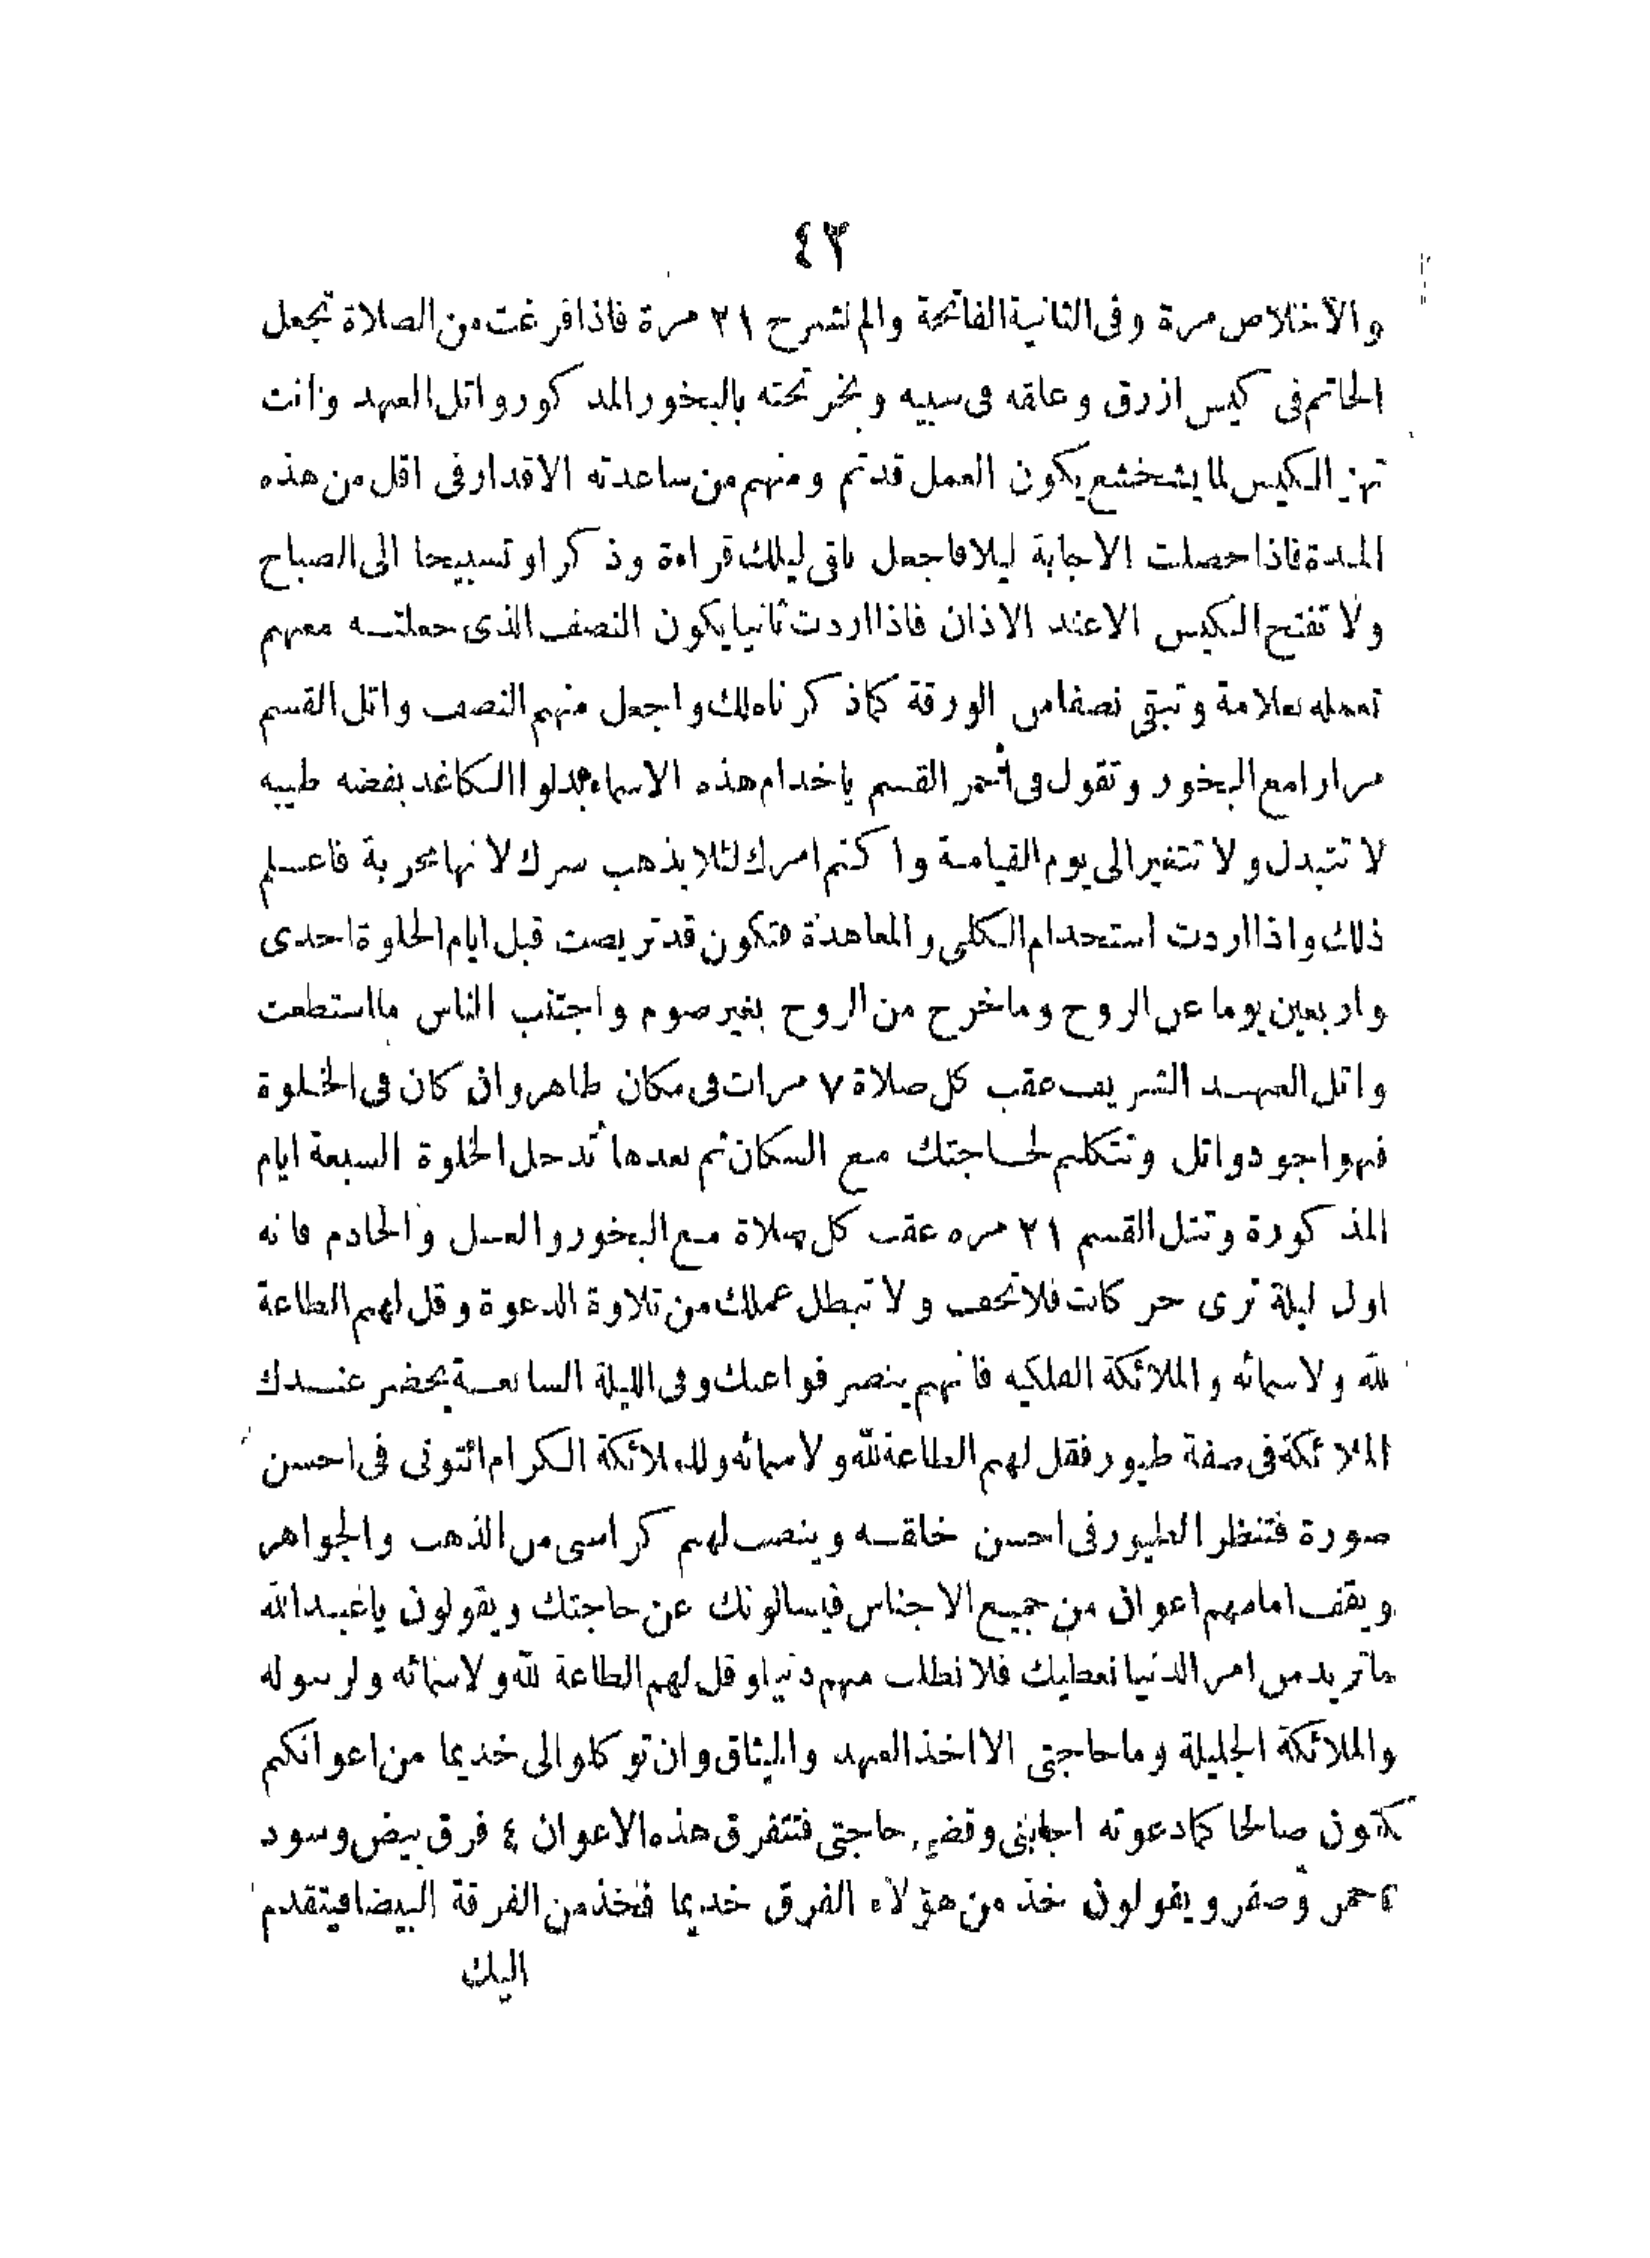 ٤٣
والاخلاص مرة وفى الثانية الفاتحة والم نشرح ٢١ مرة فاذا فرغت من الصلاة تجعل
الخاتم فى كيس ازرق وعلقه فى سبيه وبخر تحته بالبخور المذكور واتل العهد وانت
تهز الكيس لما يشخشع يكون العمل قدتم ومنهم من ساعدته الاقدار فى اقل من هذه
المدة فاذا حصلت الاجابة ليلا فاجعل باقى ليلك قراءة وذكرا وتسبيحا الى الصباح
ولا تفتح الكيس الاعند الاذان فاذا اردت ثانيا يكون النصف الذى حملتـه معهم
تعمله بعلامة وتبقى نصفا من الورقة كما ذكرناه لك واجعل منهم النصف واتل القسم
مرارا مع البخور وتقول فى آخر القسم ياخدام هذه الاسماء بدلوا الكاغد بفضه طيبه
لا تتبدل ولا تتغير الى يوم القيامة واكتم امرك لئلا يذهب سرك لانها مجربة فاعلم
ذلك واذا اردت استخدام الكلى والمعاهدة فتكون قد تريصت قبل ايام الخلوة احدى
واربعين يوما عن الروح وماخرج من الروح بغير صوم واجتنب الناس ما استطعت
واتل العهـد الشريف عقب كل صلاة ٧ مرات فى مكان طاهر وان كان فى الخلوة
فهو اجود واتل وتتكلم لحـاجتك مع السكان ثم بعدها تدخل الخلوة السبعة ايام
المذكورة وتتل القسم ٢١ مره عقب كل صلاة مع البخور والعسل والخادم فانه
اول ليلة ترى حركات فلا تخف ولا تبطل عملك من تلاوة الدعوة وقل لهم الطاعة
لله ولاسمائه والملائكة الفلكيه فانهم ينصرفوا عنك وفى الليلة السابعـة يحضر عنـدك
الملائكة فى صفة طيور فقل لهم الطاعة لله ولاسمائه وللملائكة الكرام ائتونى فى احسن
صورة فتنظر الطيور فى احسن خلقـه وينصب لهم كراسى من الذهب والجواهر
ويقف امامهم اعوان من جميع الاجناس فيسالونك عن حاجتك ويقولون ياعبـدالله
ماتريد من امر الدنيا نعطيك فلا تطلب منهم دنيا وقل لهم الطاعة لله ولاسمائه ولرسوله
والملائكة الجليلة وماحاجتى الا اخذ العهد والميثاق وان توكلوا لى خديما من اعوانكم
يكون صالحا كما دعوته اجابنى وقضى حاجتى فتتفرق هذه الاعوان ٤ فرق بيض وسود
وحمر وصفر ويقولون خذ من هؤلاء الفرق خديما فخذ من الفرقة البيضا فيتقدم
اليك